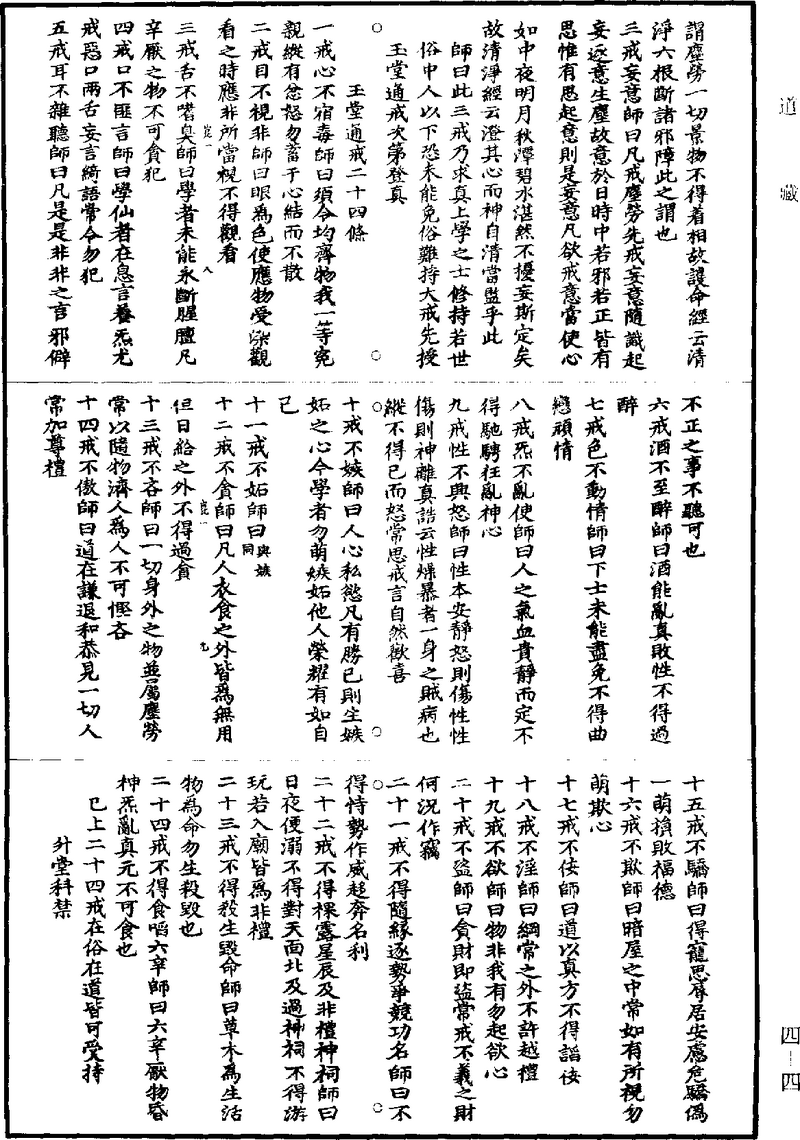 道藏
謂塵勞一切景物不得着相故護命經云清
淨六根斷諸邪障此之謂也
三戒妄意師曰凡戒塵勞先戒妄意隨識起
妄逐意生塵故意於日時中若邪若正皆有
思惟有思起意則是妄意凡欲戒意當使心
如中夜明月秋潭碧水湛然不擾妄斯定矣
故清淨經云澄其心而神自清當監乎此
師曰此三戒乃求真上學之士修持若世
俗中人以下恐未能免俗難持大戒先授
玉堂通戒次第登真
玉堂通戒二十四條
一戒心不宿毒師曰須令均齊物我一等冤
親縱有忿怒勿蓄于心結而不散
二戒目不視非師曰眼為色使應物受染觀
看之時應非所當視不得觀看
三戒舌不嗜臭師曰學者未能永斷腥膻凡
辛厭之物不可貪犯
四戒口不匪言師曰學仙者在息言養炁尤
戒惡口兩舌妄言綺語常令勿犯
五戒耳不雜聽師曰凡是是非非之言邪僻
不正之事不聽可也
六戒酒不至醉師曰酒能亂真敗性不得過
醉
七戒色不動情師曰下士未能盡免不得曲
戀頑情
八戒炁不亂使師曰人之氣血貴靜而定不
得馳騁狂亂神心
九戒性不興怒師曰性本安靜怒則傷性性
傷則神離真誥云性燥暴者一身之賊病也
縱不得已而怒常思戒言自然歡喜
十戒不嫉師曰人心私慾凡有勝己則生嫉
妬之心今學者勿萌嫉妬他人榮耀有如自
己
十一戒不妬師曰與嫉同
十二戒不貪師曰凡人衣食之外皆為無用
但日給之外不得過貪
十三戒不吝師曰一切身外之物並屬塵勞
常以隨物濟人為人不可慳吝
十四戒不傲師曰道在謙退和恭見一切人
常加尊禮
十五戒不驕師曰得寵思辱居安慮危驕傷
一萌損敗福德
十六戒不欺師曰暗屋之中常如有所視勿
萌欺心
十七戒不佞師曰道以真方不得諂佞
十八戒不淫師曰綱常之外不許越禮
十九戒不欲師曰物非我有勿起欲心
二十戒不盜師曰貪財即盜常戒不義之財
何況作竊
二十一戒不得隨緣逐勢爭競功名師曰不
得恃勢作威趍奔名利
二十二戒不得裸露星辰及非禮神祠師曰
日夜便溺不得對天面北及過神祠不得游
玩若入廟皆為非禮
二十三戒不得殺生毀命師曰草木為生活
物為命勿生殺毀也
二十四戒不得食啗六辛師曰六辛厭物昏
神炁亂真元不可食也
已上二十四戒在俗在道皆可受持
升堂科禁
四-四